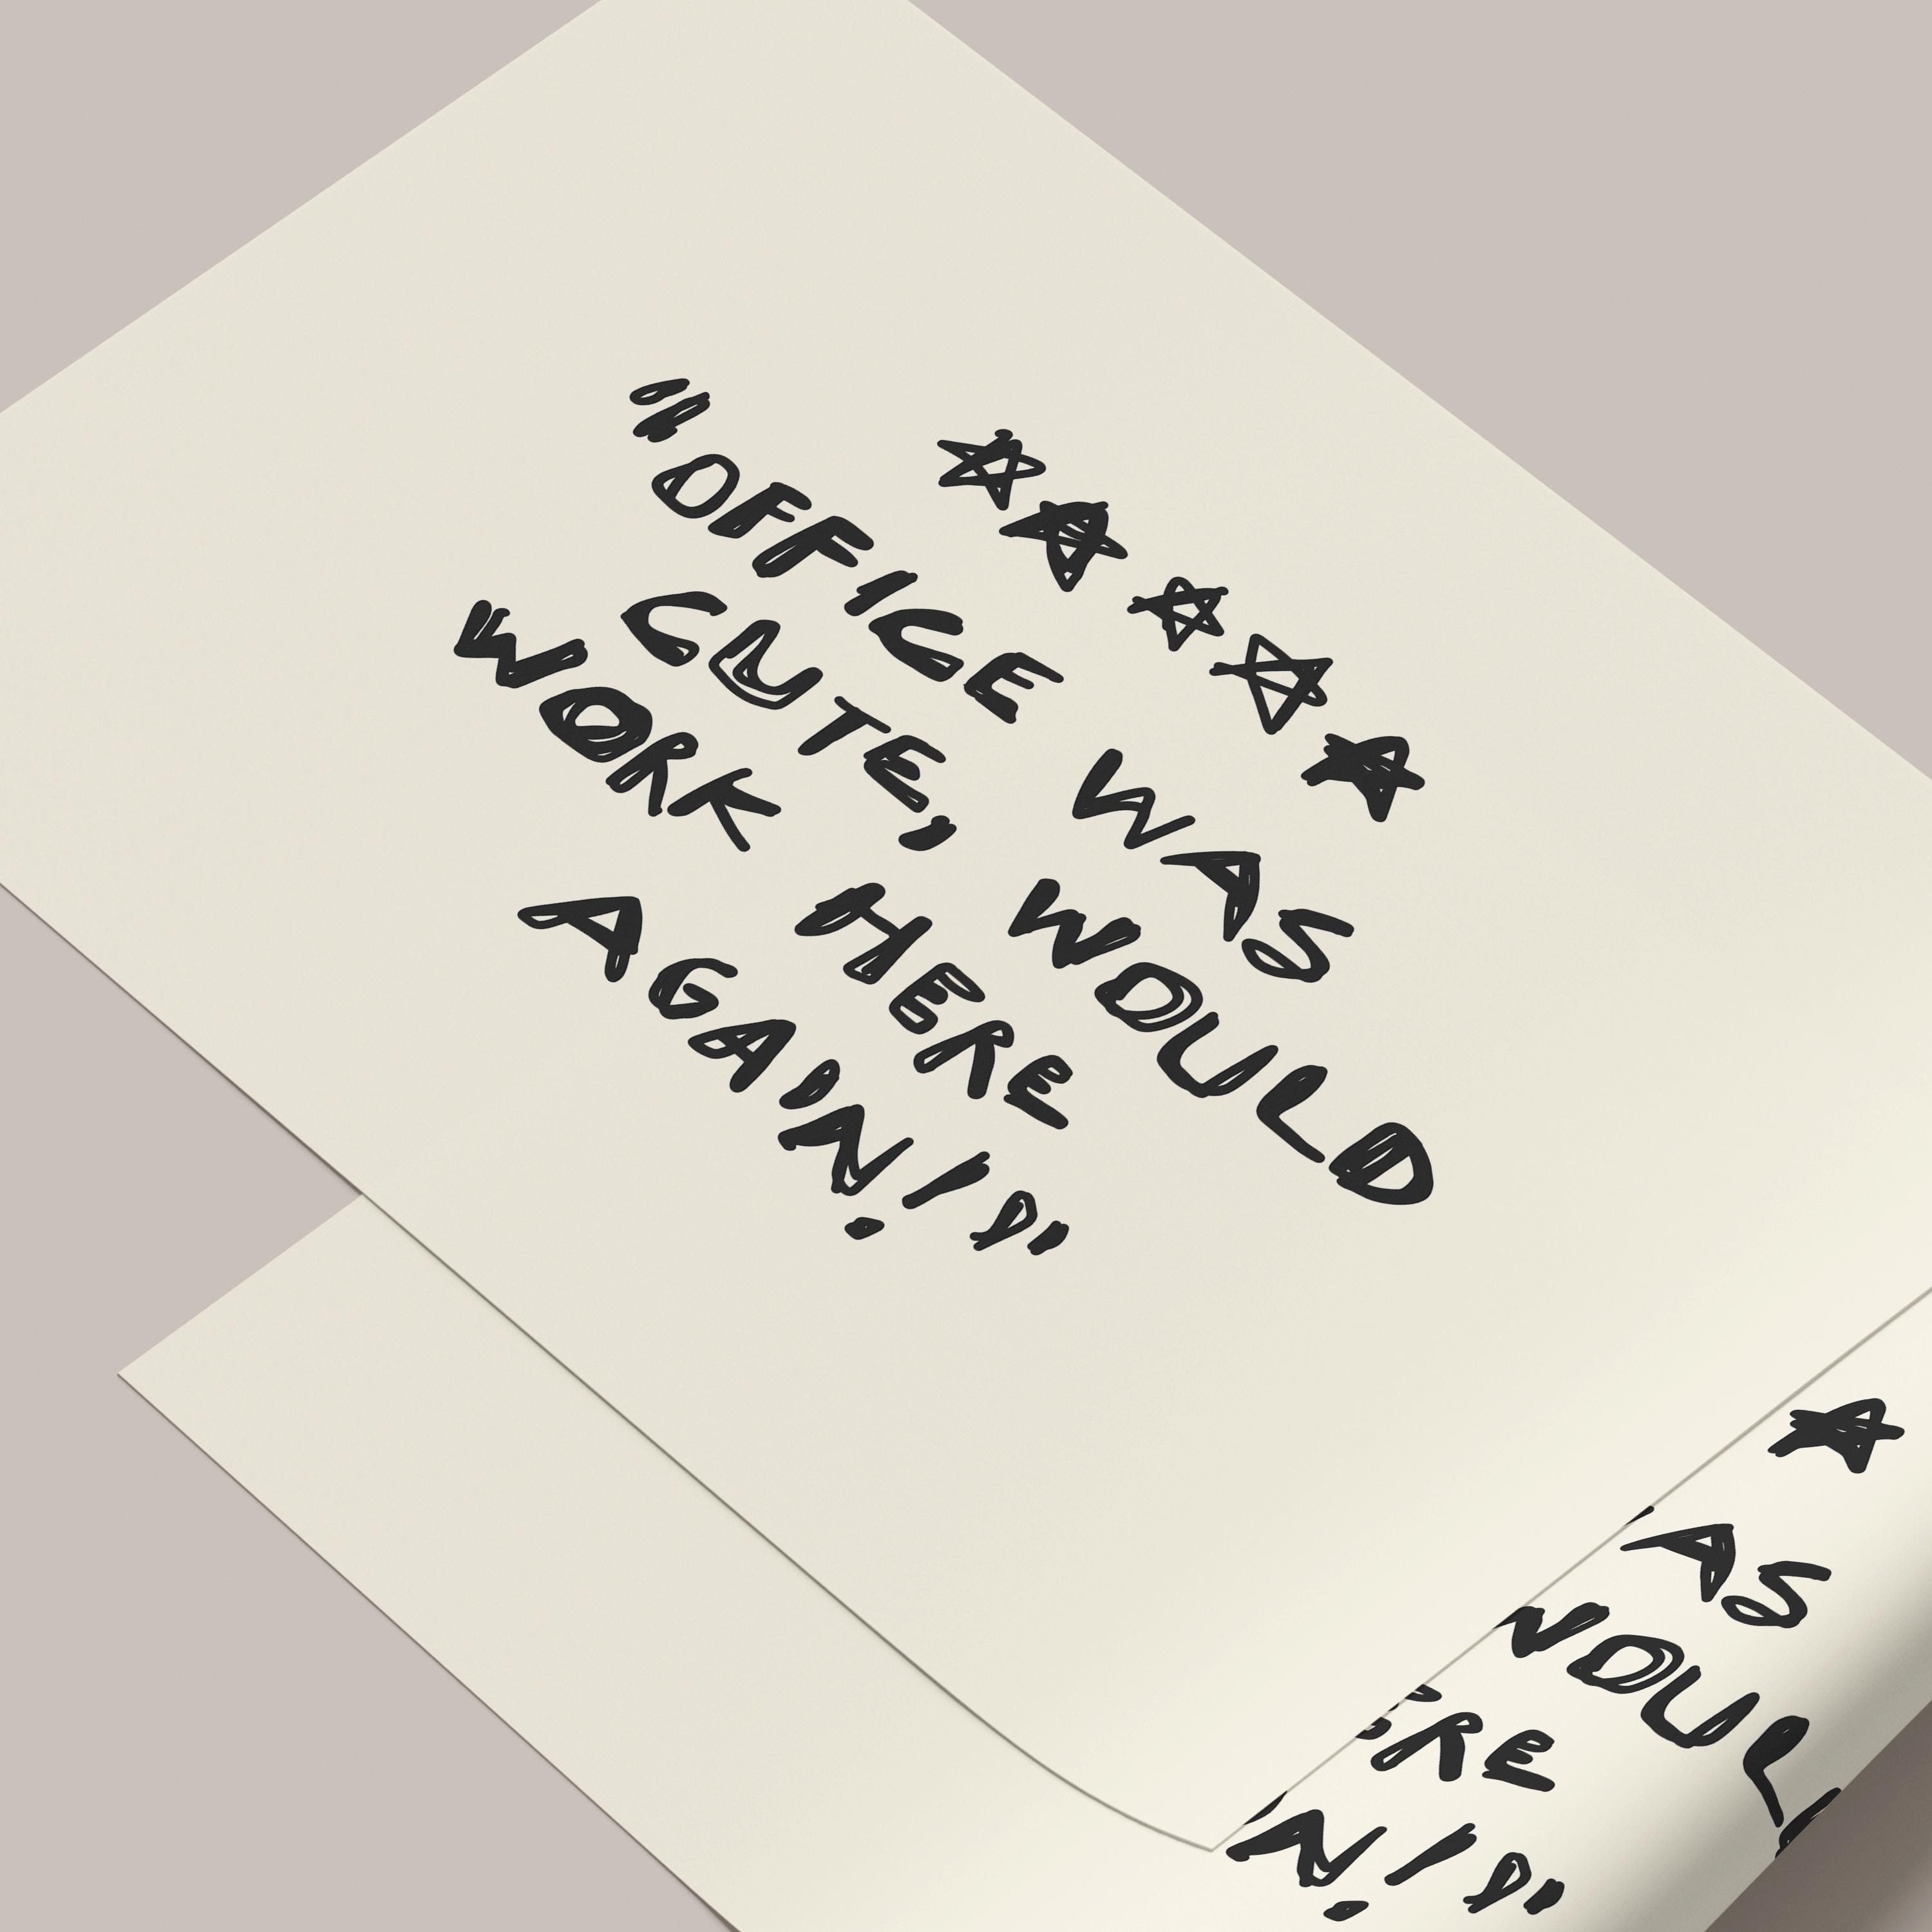 ★★★★★
"OFFICE WAS
CUTE, WOULD
WORK HERE
AGAIN!"
★
AS
WOUL
ERE
N!"